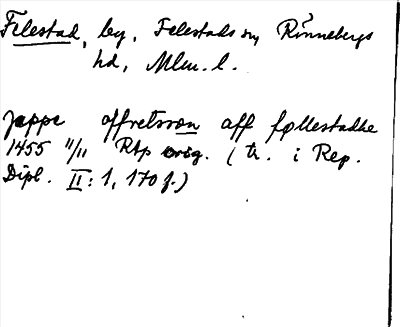 Felestad, by, Felestads sn, Rönnebergs
hd, Mlm. l.
jæppe offretsszøn aff føllestadhe
1455 11/11 Rtp orig. (tr. i Rep.
Dipl. II: 1, 170 f.)